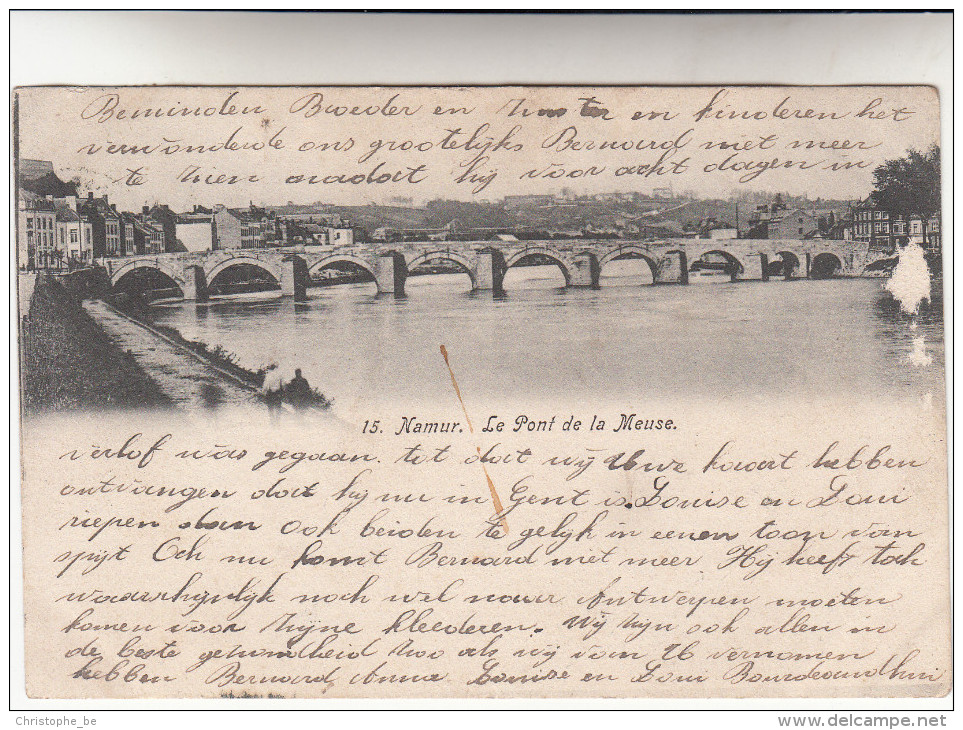 Beminden Broeder en Zuster en kinderen het
verwonderde ons grootelijks Bernard niet meer
te zien nadat hij voor acht dagen in
15. Namur. Le Pont de la Meuse.
verlof was gegaan. tot dat wij Uwe kaart hebben
ontvangen dat hij nu in Gent is. Louise en Loui
riepen dan ook beiden te gelijk in eenen toon van
spijt Och nu komt Bernard niet meer. Hij heeft toch
waarschijnlijk noch wel naar Antwerpen moeten
komen voor zijne kleederen. Wij zijn ook allen in
de beste gezondheid zoo als wij van U vernomen
hebben Bernard Anna Louise en Loui
Christophe_be
http://www.delcampe.net